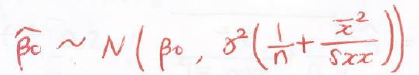 $\widehat{\beta_0} \sim N\left(\beta_0, \sigma^2\left(\frac{1}{n} + \frac{\overline{x}^2}{Sxx}\right)\right)$